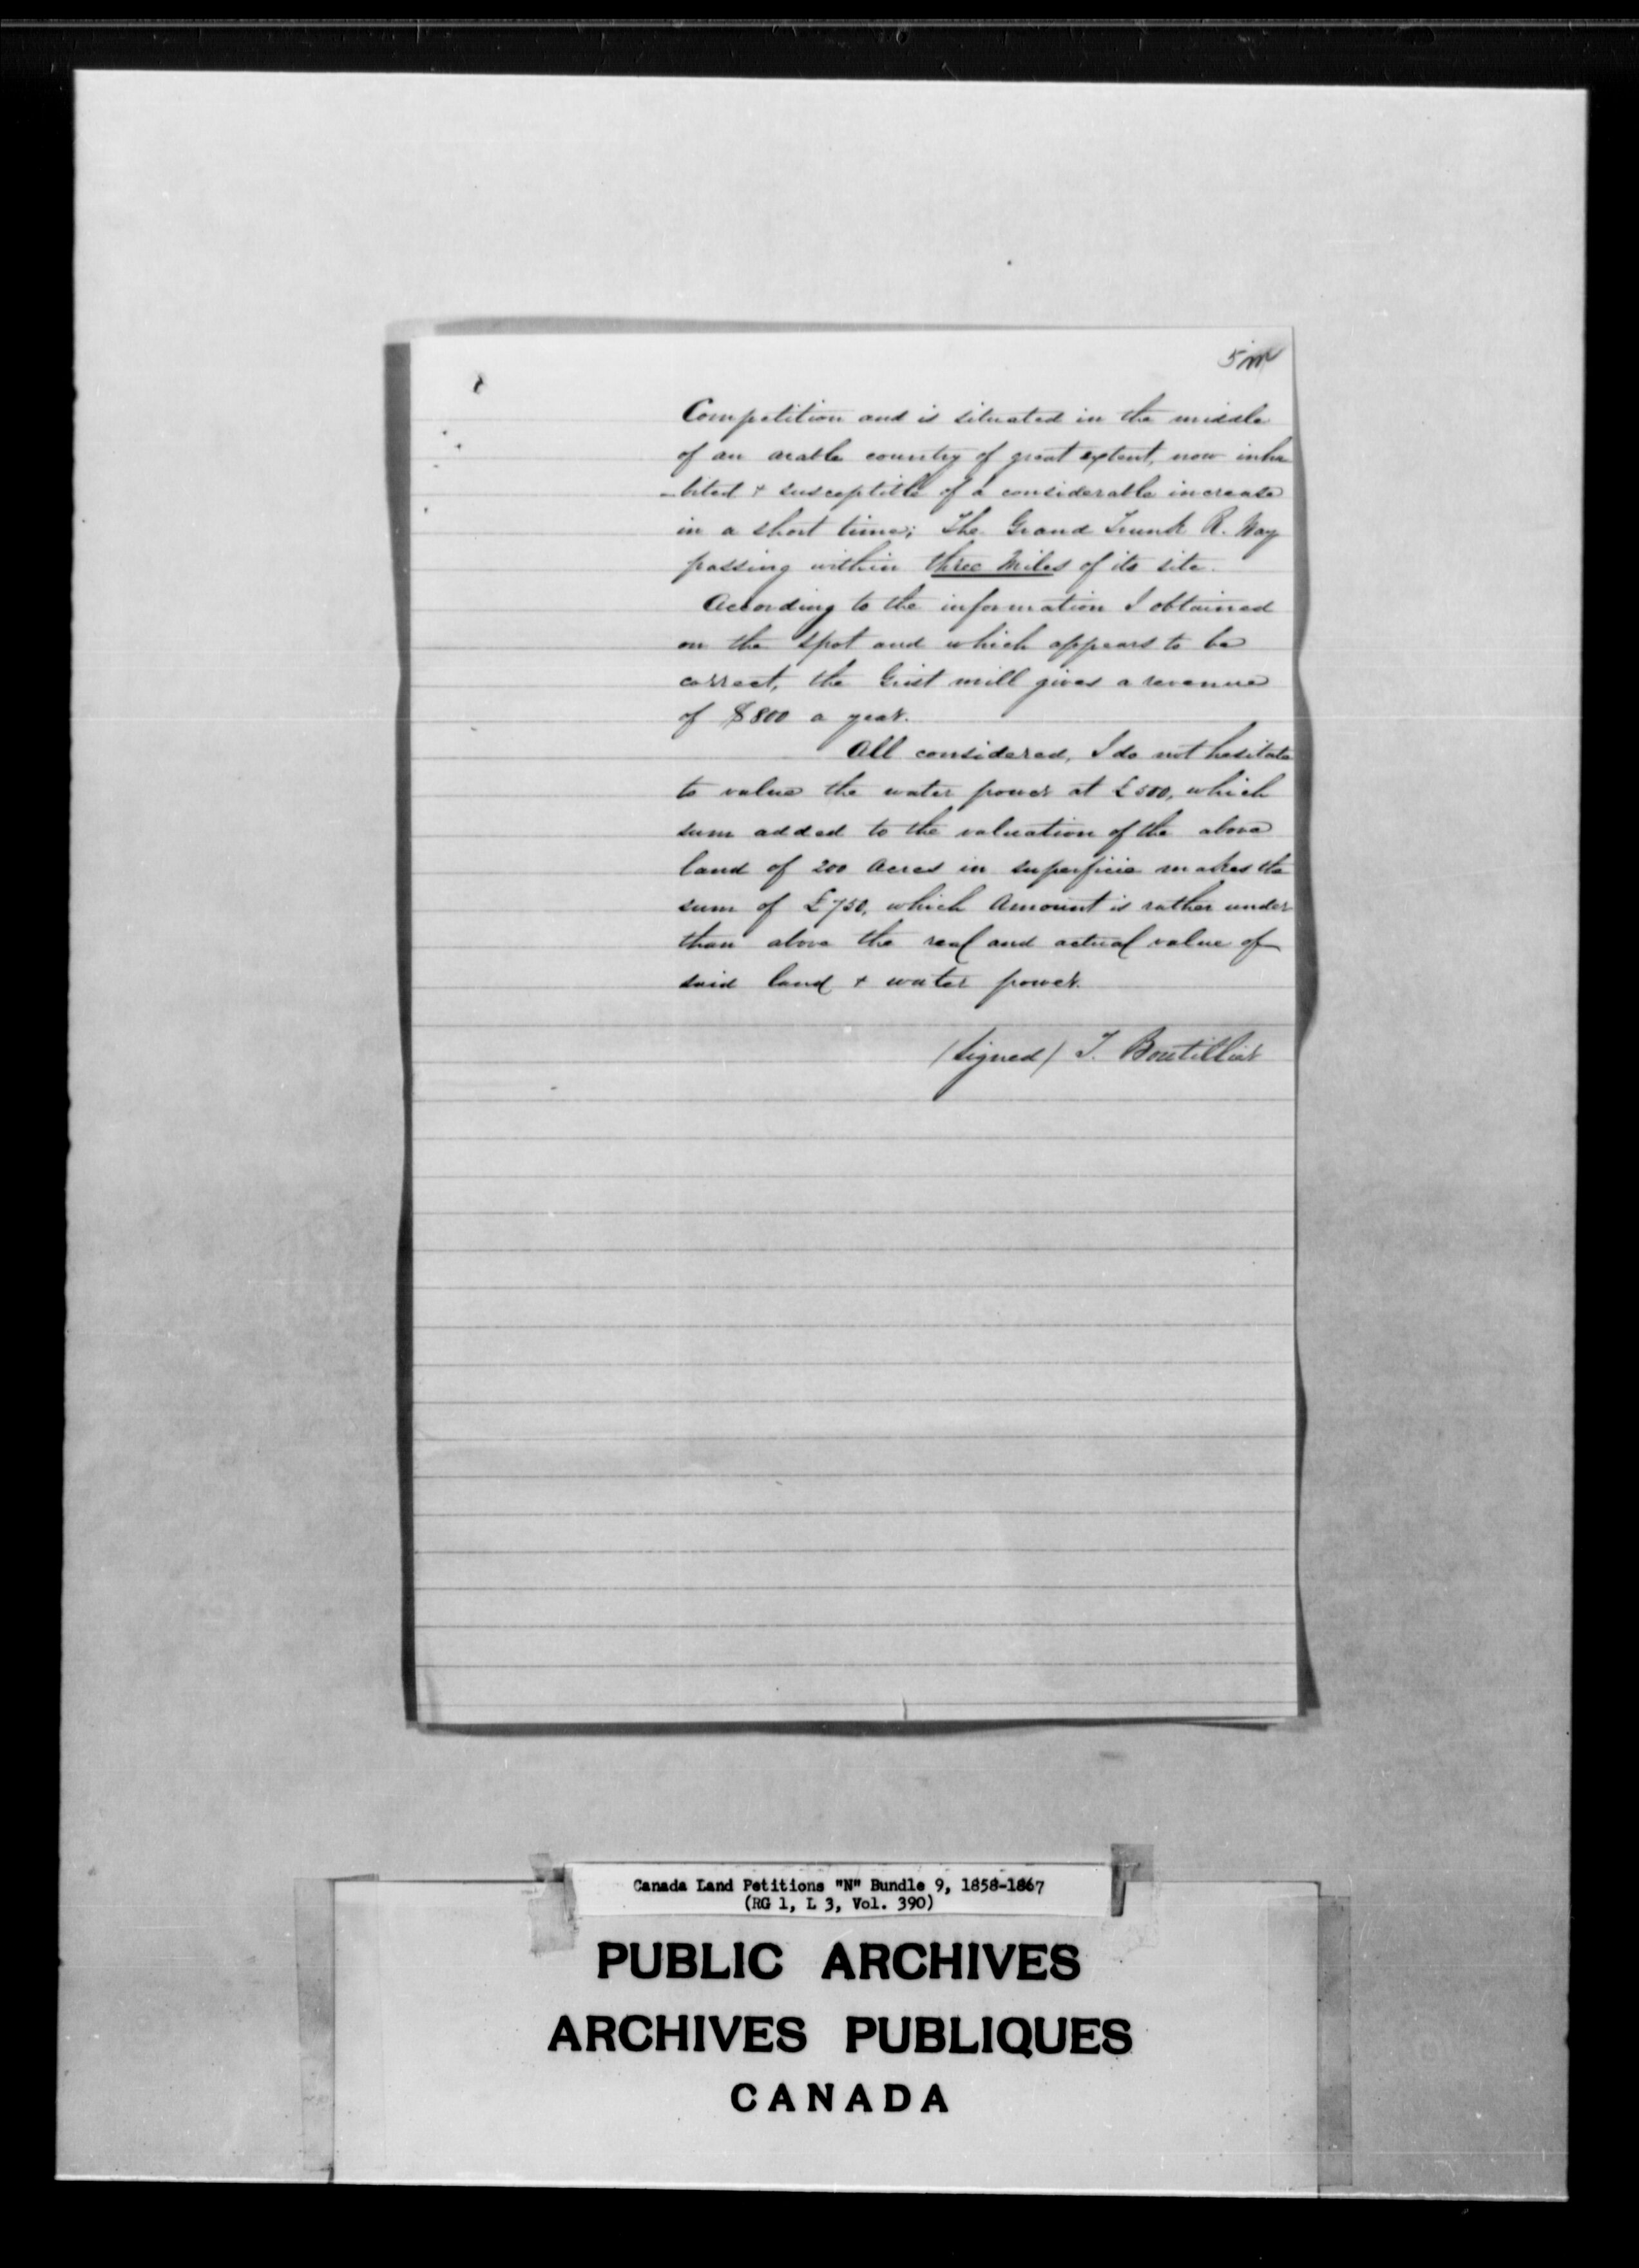 5m
Competition and is situated in the middle
of an arable country of great extent, now inha
-bited + susceptible of a considerable increase
in a short time; The Grand Trunk R. Way
passing within three Miles of its site.
According to the information I obtained
on the spot and which appears to be
correct, the Grist mill gives a revenue
of $800 a year.
All considered, I do not hesitate
to value the water power at £500, which
sum added to the valuation of the above
land of 200 Acres in superficie makes the
sum of £750, which Amount is rather under
than above the real and actual value of
said land + water power.
(signed) T. Boutillier
Canada Land Petitions "N" Bundle 9, 1858-1867
(RG 1, L 3, Vol. 390)
PUBLIC ARCHIVES
ARCHIVES PUBLIQUES
CANADA